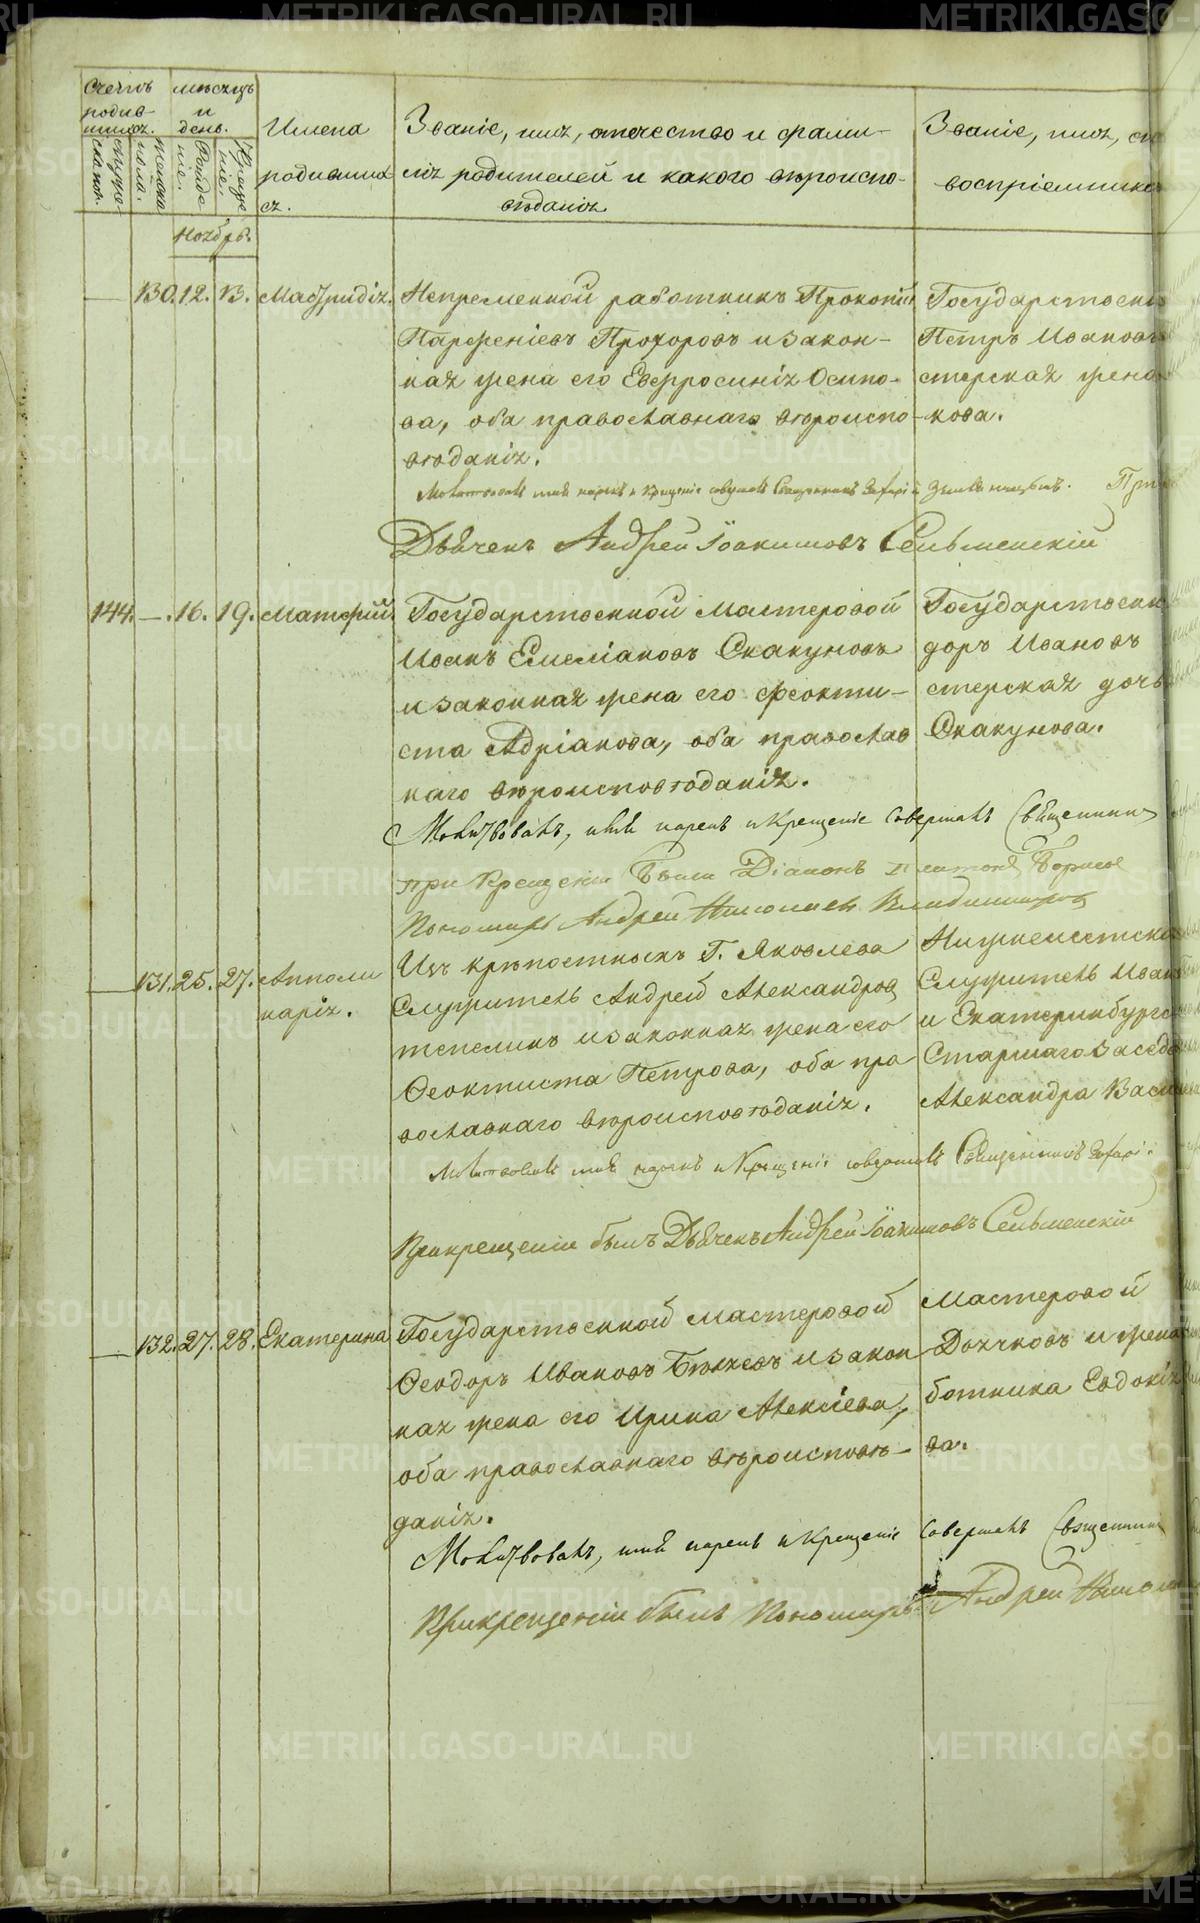 Счетъ родив-шихся.
мѣсяцъ и день.
Имена родившихся.
Званіе, имя, отечество и фами-
лія родителей и какого вѣроиспо-
вѣданія
Званіе, имя,
воспріемнико
мужеска пол.
женска пола.
Рожденіе.
Крещеніе.
Ноябрь.
130. 12. 13. Мастридія.
Непременной работникъ Прокопій
Парфеніевъ Прохоровъ и закон-
ная жена его Евфросинія Осипо-
ва, оба православнаго вѣроиспо-
вѣданія.
Государственн
Петръ Ивановъ
стерская жена
кова.
Молитвовалъ имя нарекъ и Крещеніе совершилъ Священникъ
Дьячекъ Андрей Іоакимовъ Сельменскій
144. —. 16. 19. Матфій.
Государственной Мастеровой
Иванъ Емеліановъ Скакуновъ
и законная жена его Феокти-
ста Адріанова, оба православ
наго вѣроисповѣданія.
Государствен
доръ Ивановъ
стерская дочь
Скакунова.
Молитвовалъ, имя нарекъ и Крещеніе Совершалъ Священник
при Крещеніи были Діаконъ
Пономарь Андрей Николаевъ Владимиров
131. 25. 27. Апполи
нарія.
Изъ крѣпостныхъ Г. Яковлева
Служитель Андрей Александров
тепелинъ и законная жена его
Феоктиста Петрова, оба пра
вославнаго вѣроисповѣданія.
Нижнеисетск
Служитель Иван
и Екатеринбургс
Старшаго заседа
Александра Васил
Молитвовалъ имя нарекъ и Крещеніе совершилъ Священникъ
При крещеніи былъ Дьячекъ Андрей Іоакимовъ Сельменскій
132. 27. 28. Екатерина
Государственной мастеровой
Феодоръ Ивановъ Бѣляевъ и закон
ная жена его Ирина Алексіева,
оба православнаго вѣроисповѣ-
данія.
Мастеровой
Дьячковъ и жена
ботника Евдокія
ва.
Молитвовалъ, имя нарекъ и Крещеніе Совершалъ Священник
При крещеніи былъ Пономарь Андрей Никола
METRIKI.GASO-URAL.RU